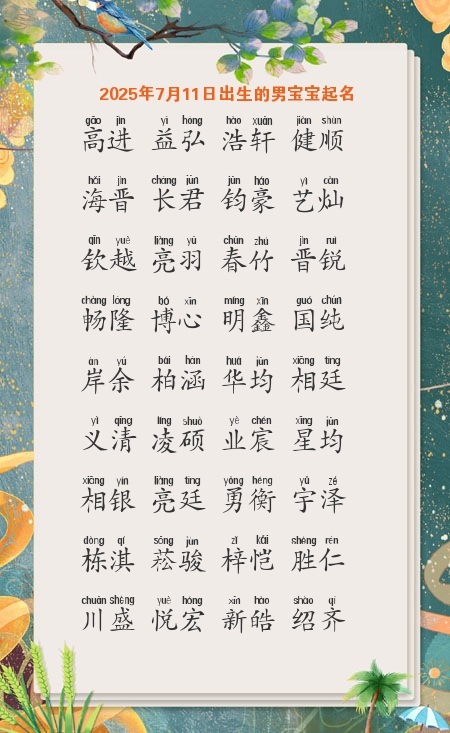 2025年7月11日出生的男宝宝起名
gāo jìn yì hóng hào xuān jiàn shùn
高进 益弘 浩轩 健顺
hǎi jìn cháng jūn jūn háo yì càn
海晋 长君 钧豪 艺灿
qīn yuè liàng yǔ chūn zhú jìn ruì
钦越 亮羽 春竹 晋锐
chàng lóng bó xīn míng xīn guó chún
畅隆 博心 明鑫 国纯
àn yú bǎi hán huá jūn xiāng tíng
岸余 柏涵 华均 相廷
yì qīng líng shuò yè chén xīng jūn
义清 凌硕 业宸 星均
xiāng yín liàng tíng yǒng héng yǔ zé
相银 亮廷 勇衡 宇泽
dòng qí sōng jùn zǐ kǎi shèng rén
栋淇 菘骏 梓恺 胜仁
chuān shèng yuè hóng xīn hào shào qí
川盛 悦宏 新皓 绍齐